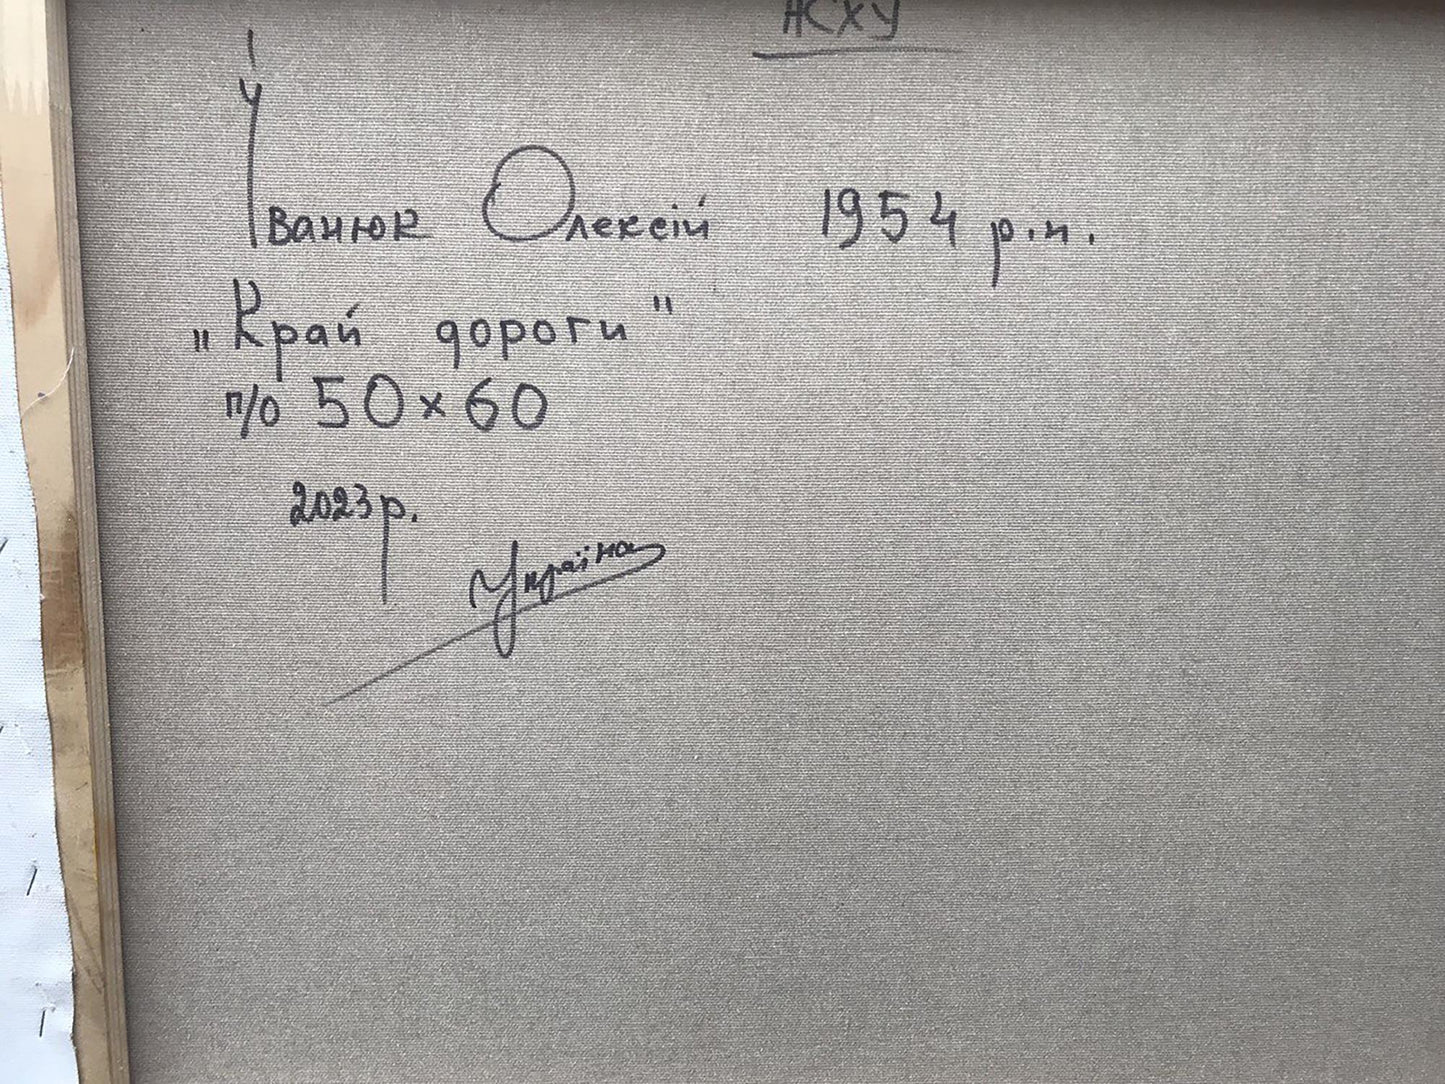 НСХУ
Іванюк Олексій 1954 р.н.
„Край дороги"
п/о 50×60
2023р.
Україна